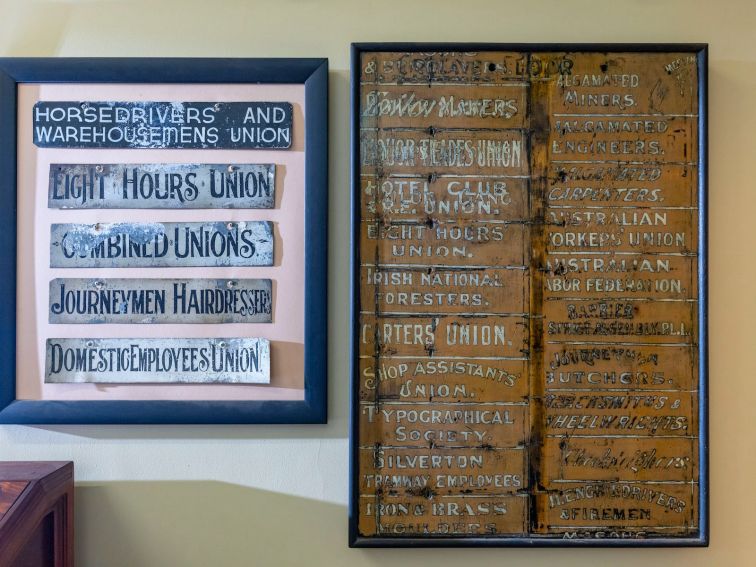 HORSEDRIVERS AND
WAREHOUSEMENS UNION
EIGHT HOURS UNION
COMBINED UNIONS.
JOURNEYMEN HAIRDRESSERS
DOMESTIC EMPLOYEES UNION.
&
MAKERS
LIQUOR TRADES UNION
HOTEL CLUB
& R.E. UNION.
EIGHT HOURS
UNION.
IRISH NATIONAL
FORESTERS.
CARTERS' UNION.
SHOP ASSISTANTS'
UNION.
TYPOGRAPHICAL
SOCIETY.
SILVERTON
TRAMWAY EMPLOYEES
IRON & BRASS
MOULDERS
ALGAMATED
MINERS.
ALGAMATED
ENGINEERS.
ALGAMATED
CARPENTERS.
AUSTRALIAN
WORKERS' UNION.
AUSTRALIAN
LABOR FEDERATION.
BARRIER
JOURNEYMEN
BUTCHERS.
BLACKSMITHS &
WHEELWRIGHTS.
DRIVERS
& FIREMEN
MASONS